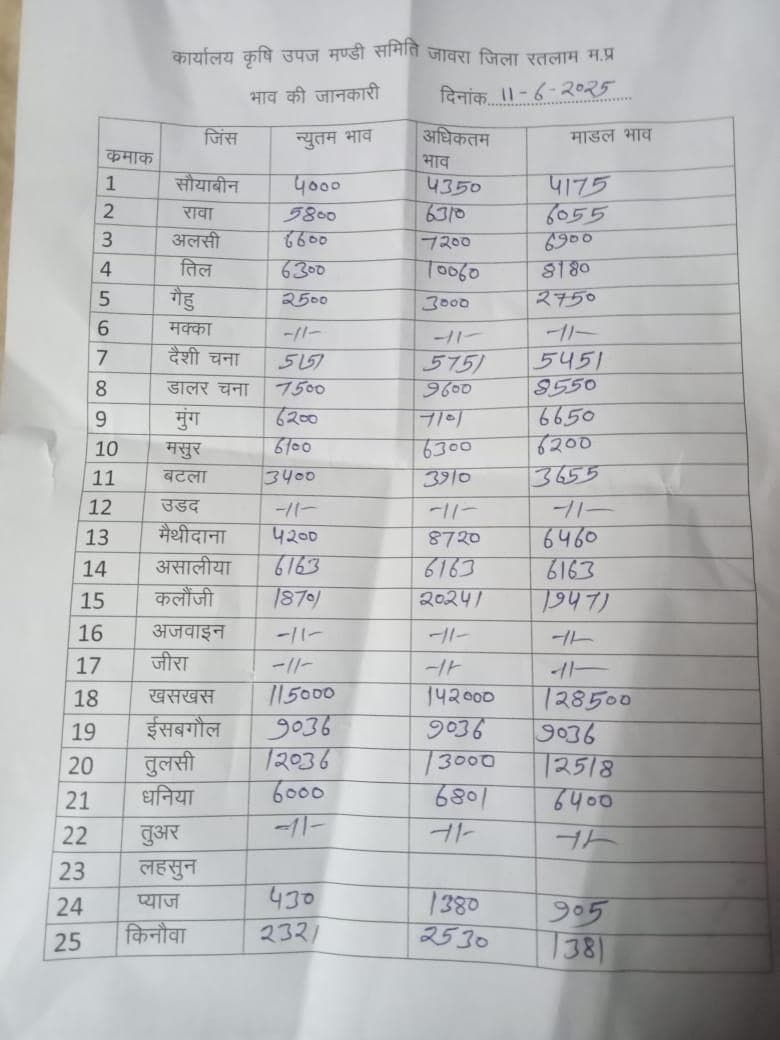 कार्यालय कृषि उपज मण्डी समिति जावरा जिला रतलाम म.प्र
भाव की जानकारी दिनांक 11-6-2025
कमाक जिंस न्युतम भाव अधिकतम भाव माडल भाव
1 सौयाबीन 4000 4350 4175
2 रावा 5800 6310 6055
3 अलसी 6600 7200 6900
4 तिल 6300 10060 8180
5 गैहु 2500 3000 2750
6 मक्का -11- -11- -11-
7 दैशी चना 5151 5751 5451
8 डालर चना 7500 9600 8550
9 मुंग 6200 7101 6650
10 मसुर 6100 6300 6200
11 बटला 3400 3910 3655
12 उडद -11- -11- -11-
13 मैथीदाना 4200 8720 6460
14 असालीया 6163 6163 6163
15 कलौंजी 18701 20241 19471
16 अजवाइन -11- -11- -11-
17 जीरा -11- -11- -11-
18 खसखस 115000 142000 128500
19 ईसबगौल 9036 9036 9036
20 तुलसी 12036 13000 12518
21 धनिया 6000 6801 6400
22 तुअर -11- -11- -11-
23 लहसुन
24 प्याज 430 1380 905
25 किनौवा 2321 2530 1381